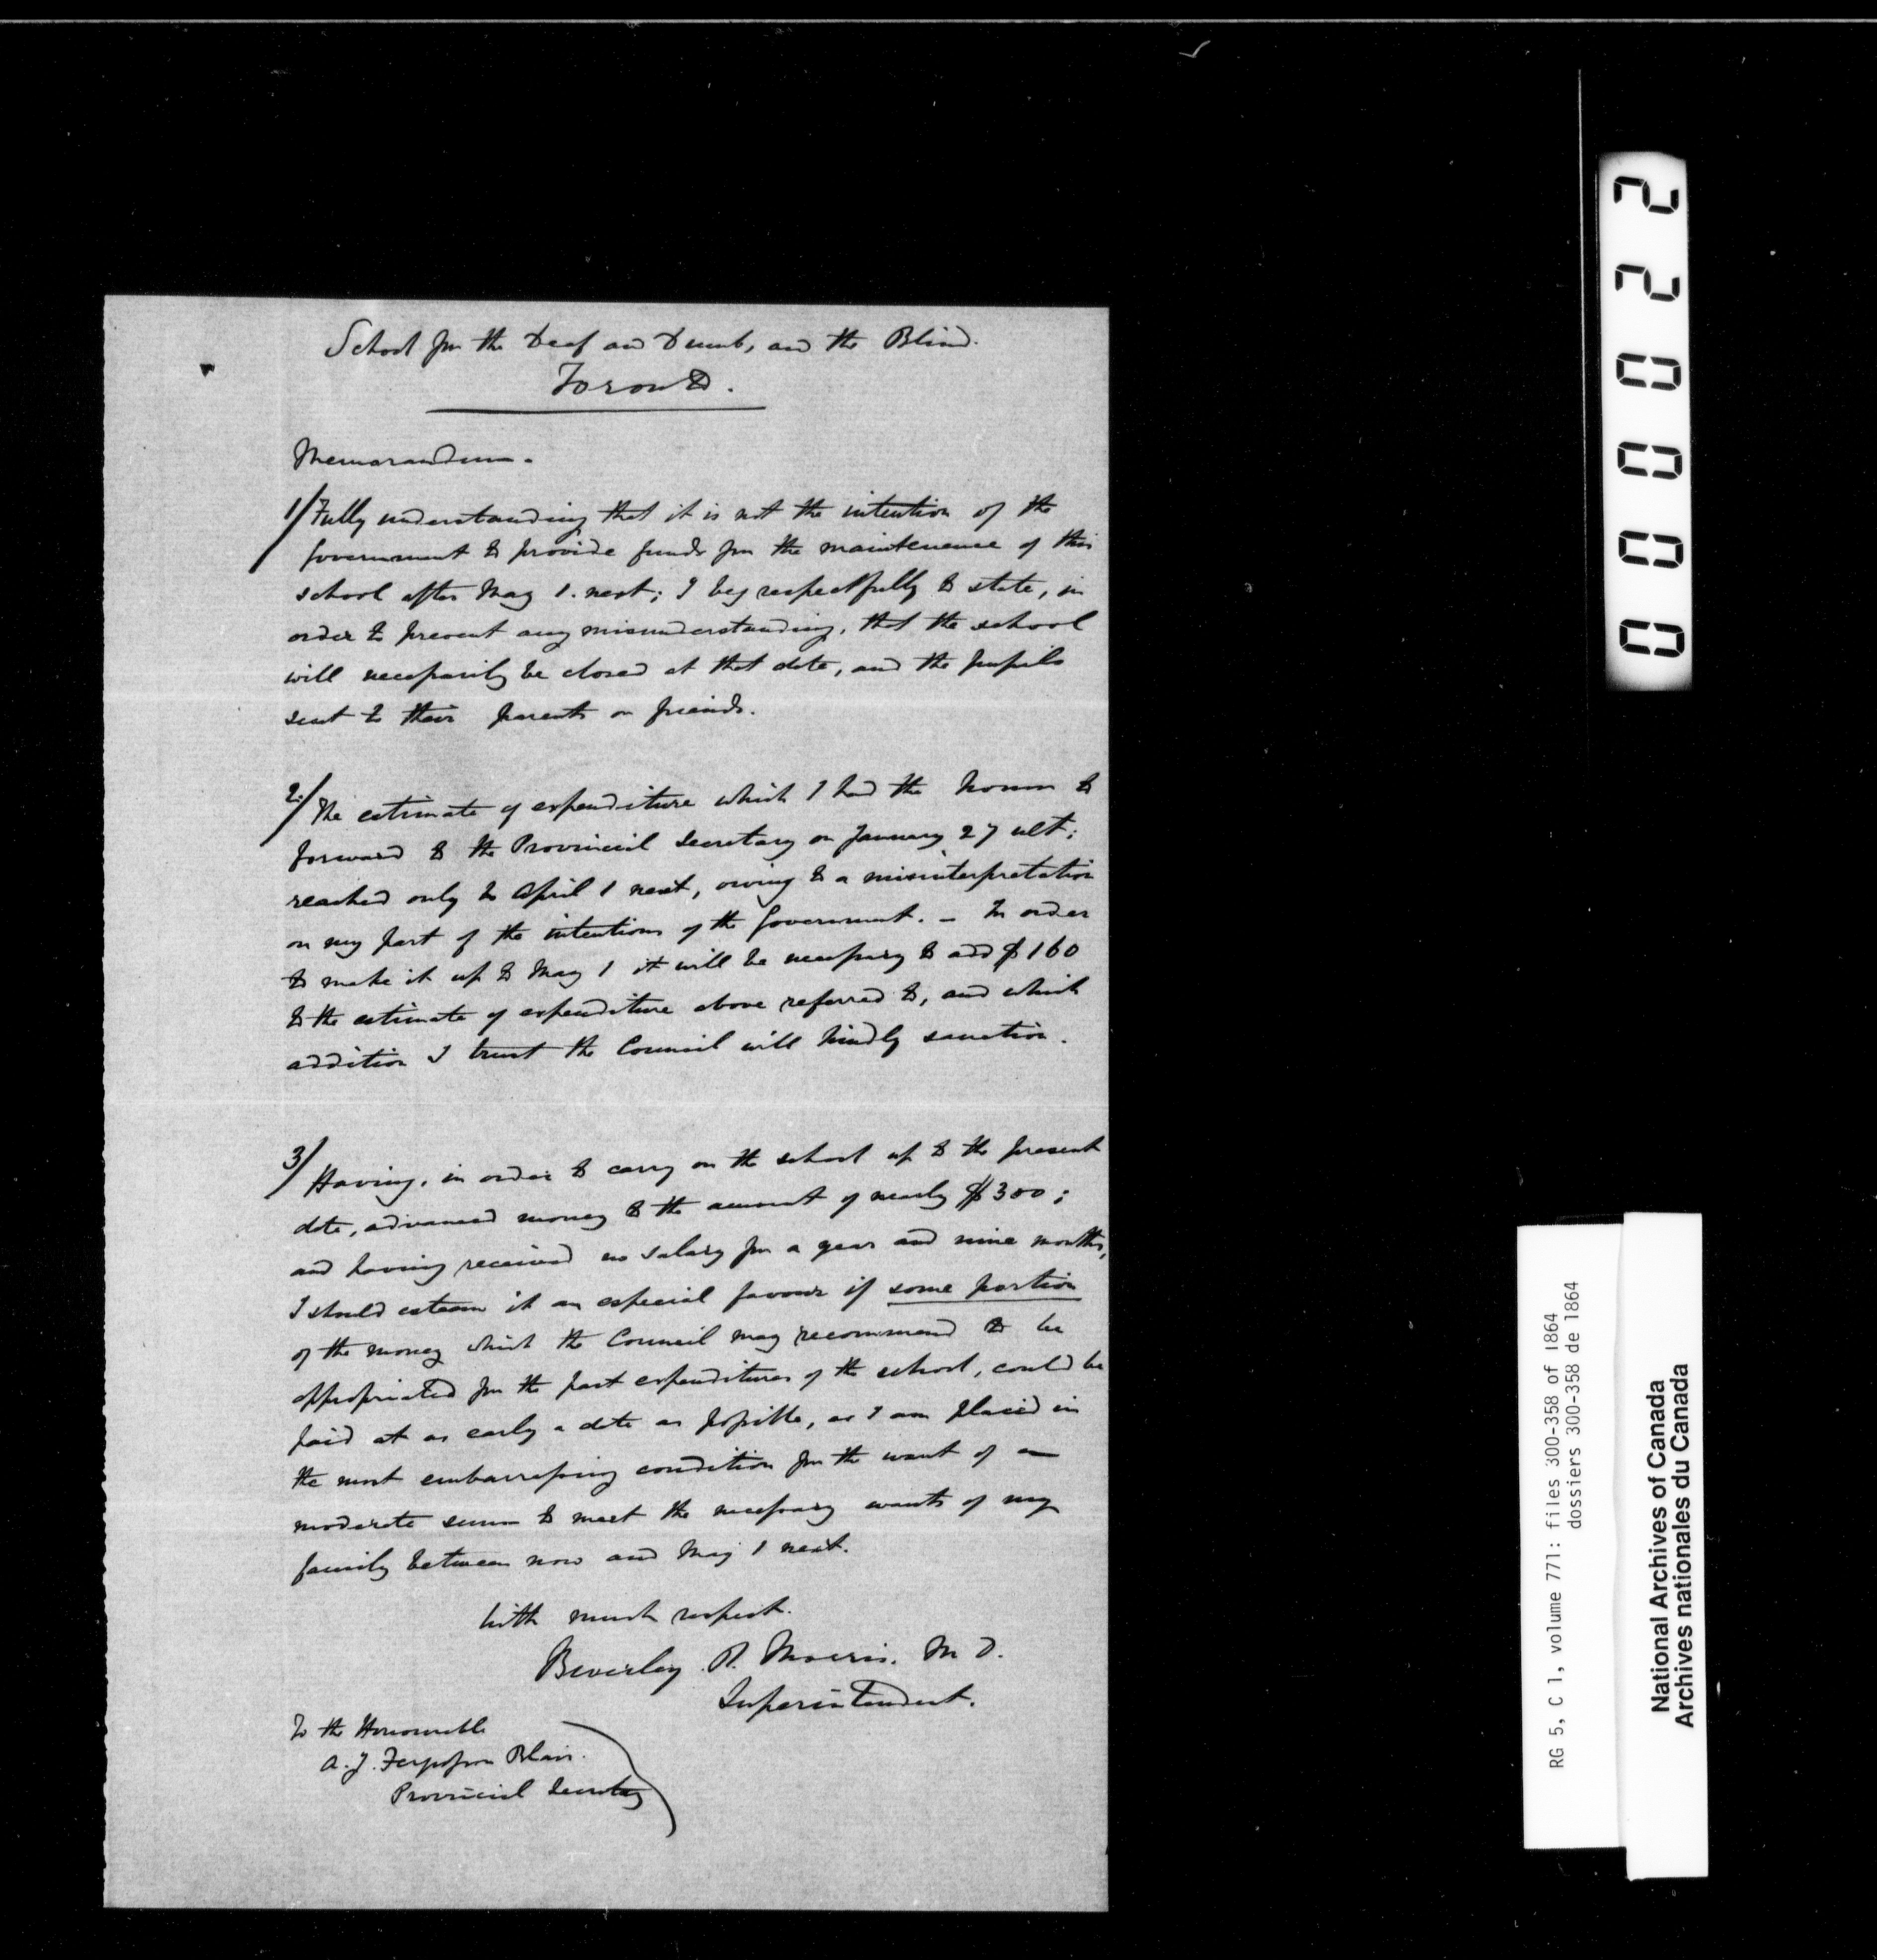 School for the Deaf and Dumb, and the Blind.
Toronto.
Memorandum.
1/ Fully understanding that it is not the intention of the
Government to provide funds for the maintenence of this
school after May 1. next; I beg respectfully to state, in
order to prevent any misunderstanding, that the school
will necessarily be closed at that date, and the pupils
sent to their parents or friends.
2./ The estimate of expenditure which I had the honour to
forward to the Provincial Secretary on January 27 ult:
reached only to April 1 next, owing to a misinterpretation
on my part of the intentions of the Government. – In order
to make it up to May 1 it will be necessary to add $160
to the estimate of expenditure above referred to, and which
addition I trust the Council will kindly sanction.
3/ Having, in order to carry on the school up to the present
date, advanced money to the amount of nearly $300;
and having received no salary for a year and nine months,
I should esteem it an especial favour if some portion
of the money which the Council may recommend to be
appropriated for the past expenditures of the school, could be
paid at as early a date as possible, as I am placed in
the most embarrassing condition for the want of a
moderate sum to meet the necessary wants of my
family between now and May 1 next.
With much respect.
Beverley R. Morris. M D.
Superintendent.
To the Honourable
A. J. Fergusson Blair.
Provincial Secretary
000022
RG 5, C 1, volume 771: files 300-358 of 1864
dossiers 300-358 de 1864
National Archives of Canada
Archives nationales du Canada